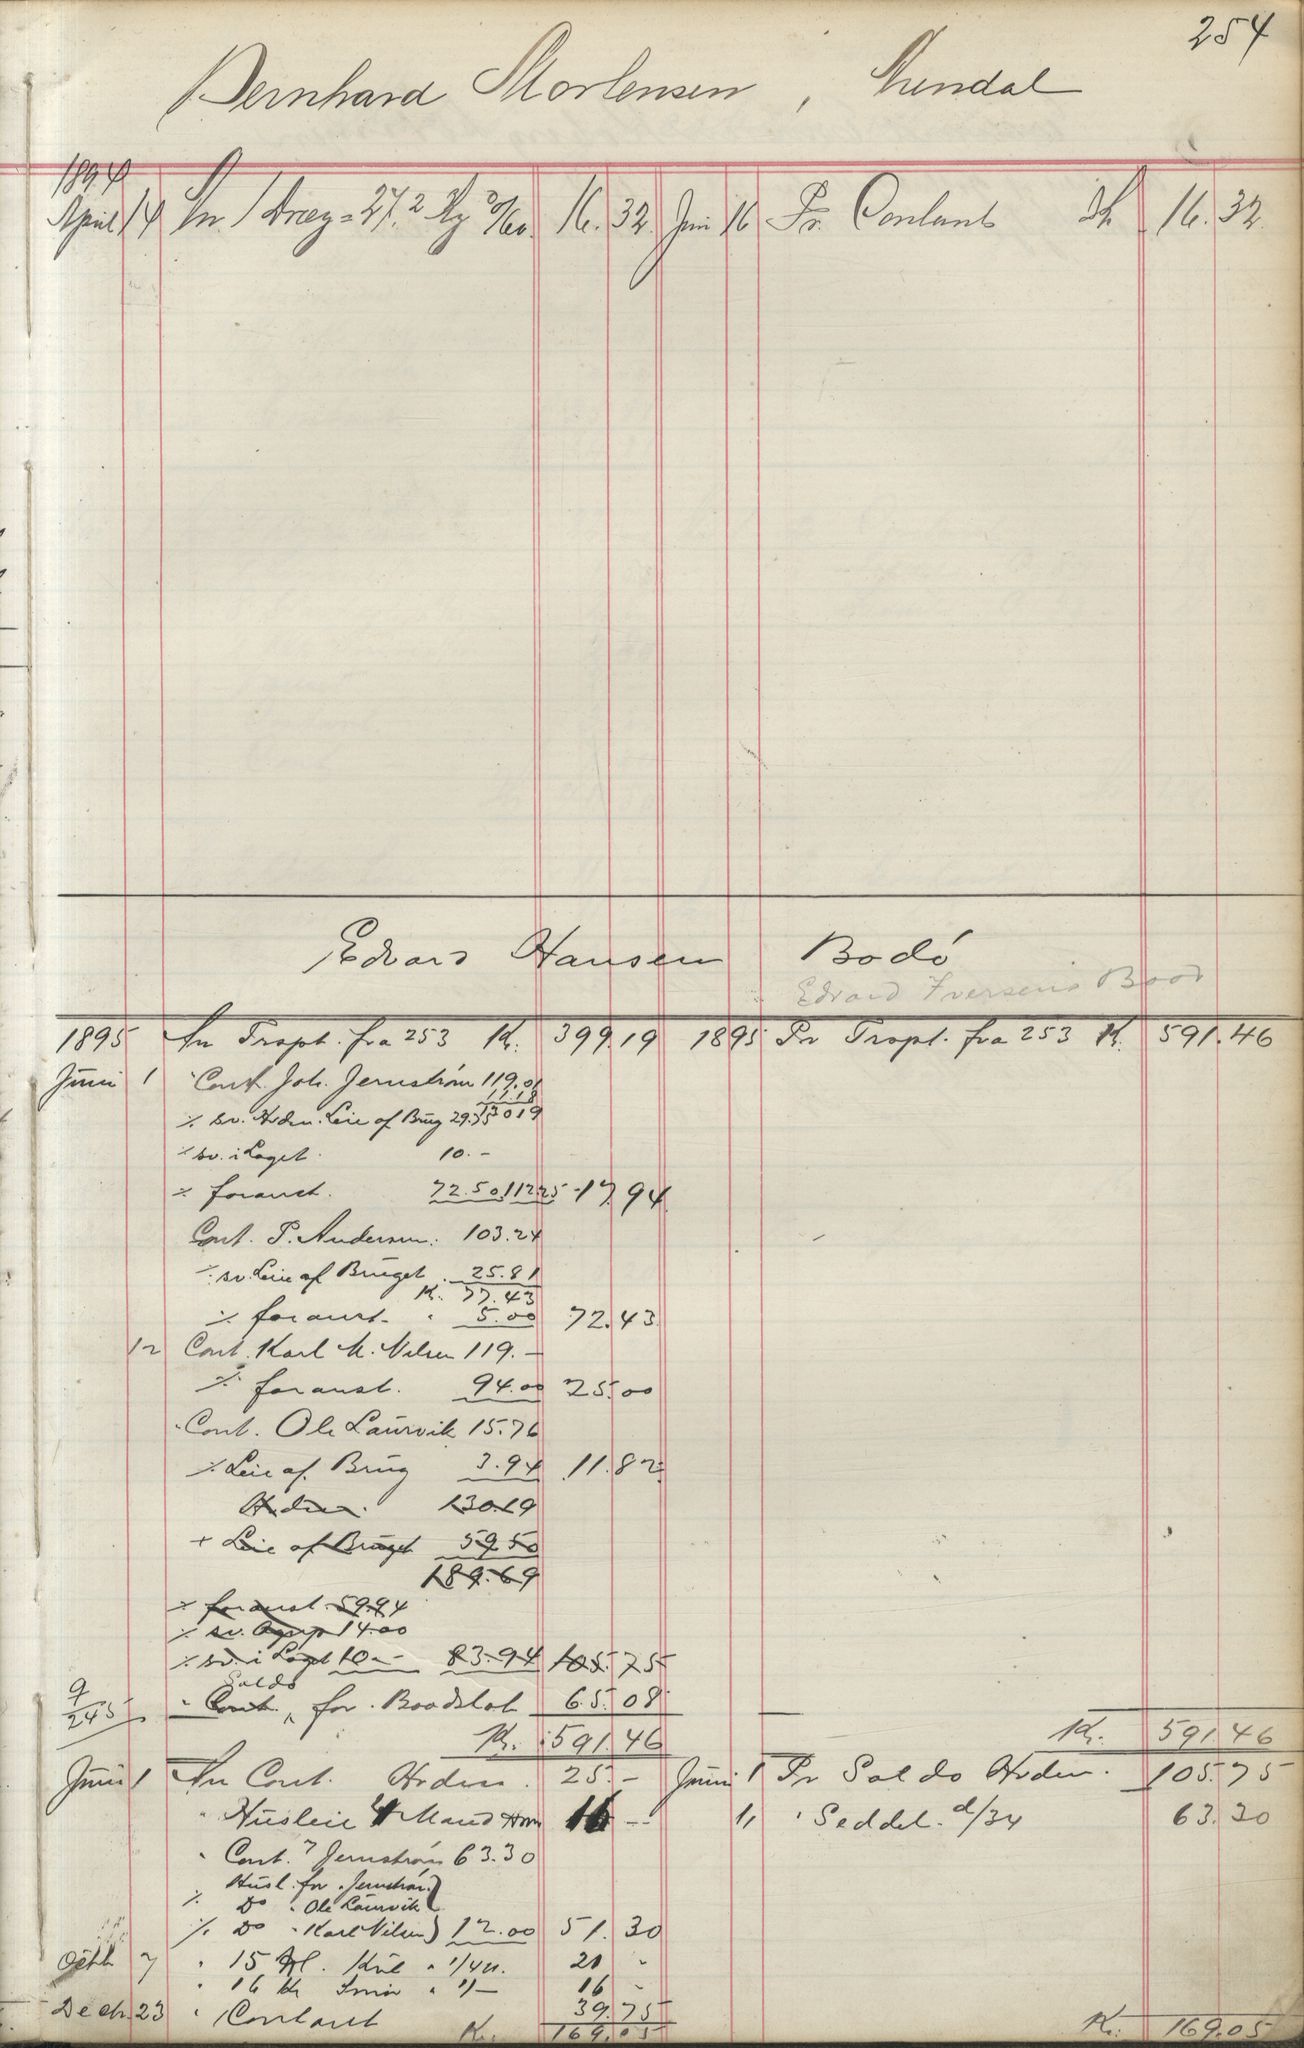 254
Bernhard Mortensen,
1894
April 14 An 1 Dræg = 27.2 Kg 16.32 Juni 16 Pr. Contant 16.32
Edvard Hansen Bodö
Edvard Iversens Bood
1895 An Trspt. fra 253 Kr. 399.19 1895 Pr Trspt. fra 253 Kr. 591.46
Juni 1 " Cont Joh. Jernström 119.01
11.18
130 19
% sv. Hrden. Leie af Brug 29.75
% sv. i Laget 10.-
% foranst. 72.50 112.25 17.94
Cont. P. Andersen. 103.24
% sv. Leie af Bruget 25.81
Kr. 77.43
% foranst. " 5.00 72.43
12 Cont. Karl M. Nilsen 119.-
% foranst. 94.00 25.00
" Cont. Ole Laurvik 15.76
% Leie af Brug 3.94 11.82
Hrden. 130.19
+ Leie af Bruget 59.50
189.69
% foranst. 59.94
% sv. 14.00
% sv. i Laget 10.- 83.94 105.75
Saldo
9/245 " Cont. " for Boodslot 65.08
Kr. 591.46 Kr. 591.46
Juni 1 An Cont. Hrden. 25.- Juni 1 Pr Saldo Hrden. 105.75
" Husleie 4 Mand 16 - 1, " Seddel. d/34 63.30
" Cont. Jernström 63.30
% Husl. for Jernström
Do " Ole Laurvik
% Do " Karl Nilsen 12.00 51.30
Octb 7 " 15 Hl. Kul " 1/40. 21 "
" 16 Kg Smör " 1/- 16 -
Decb. 23 " Contant 39.75
Kr. 169.05 Kr. 169.05